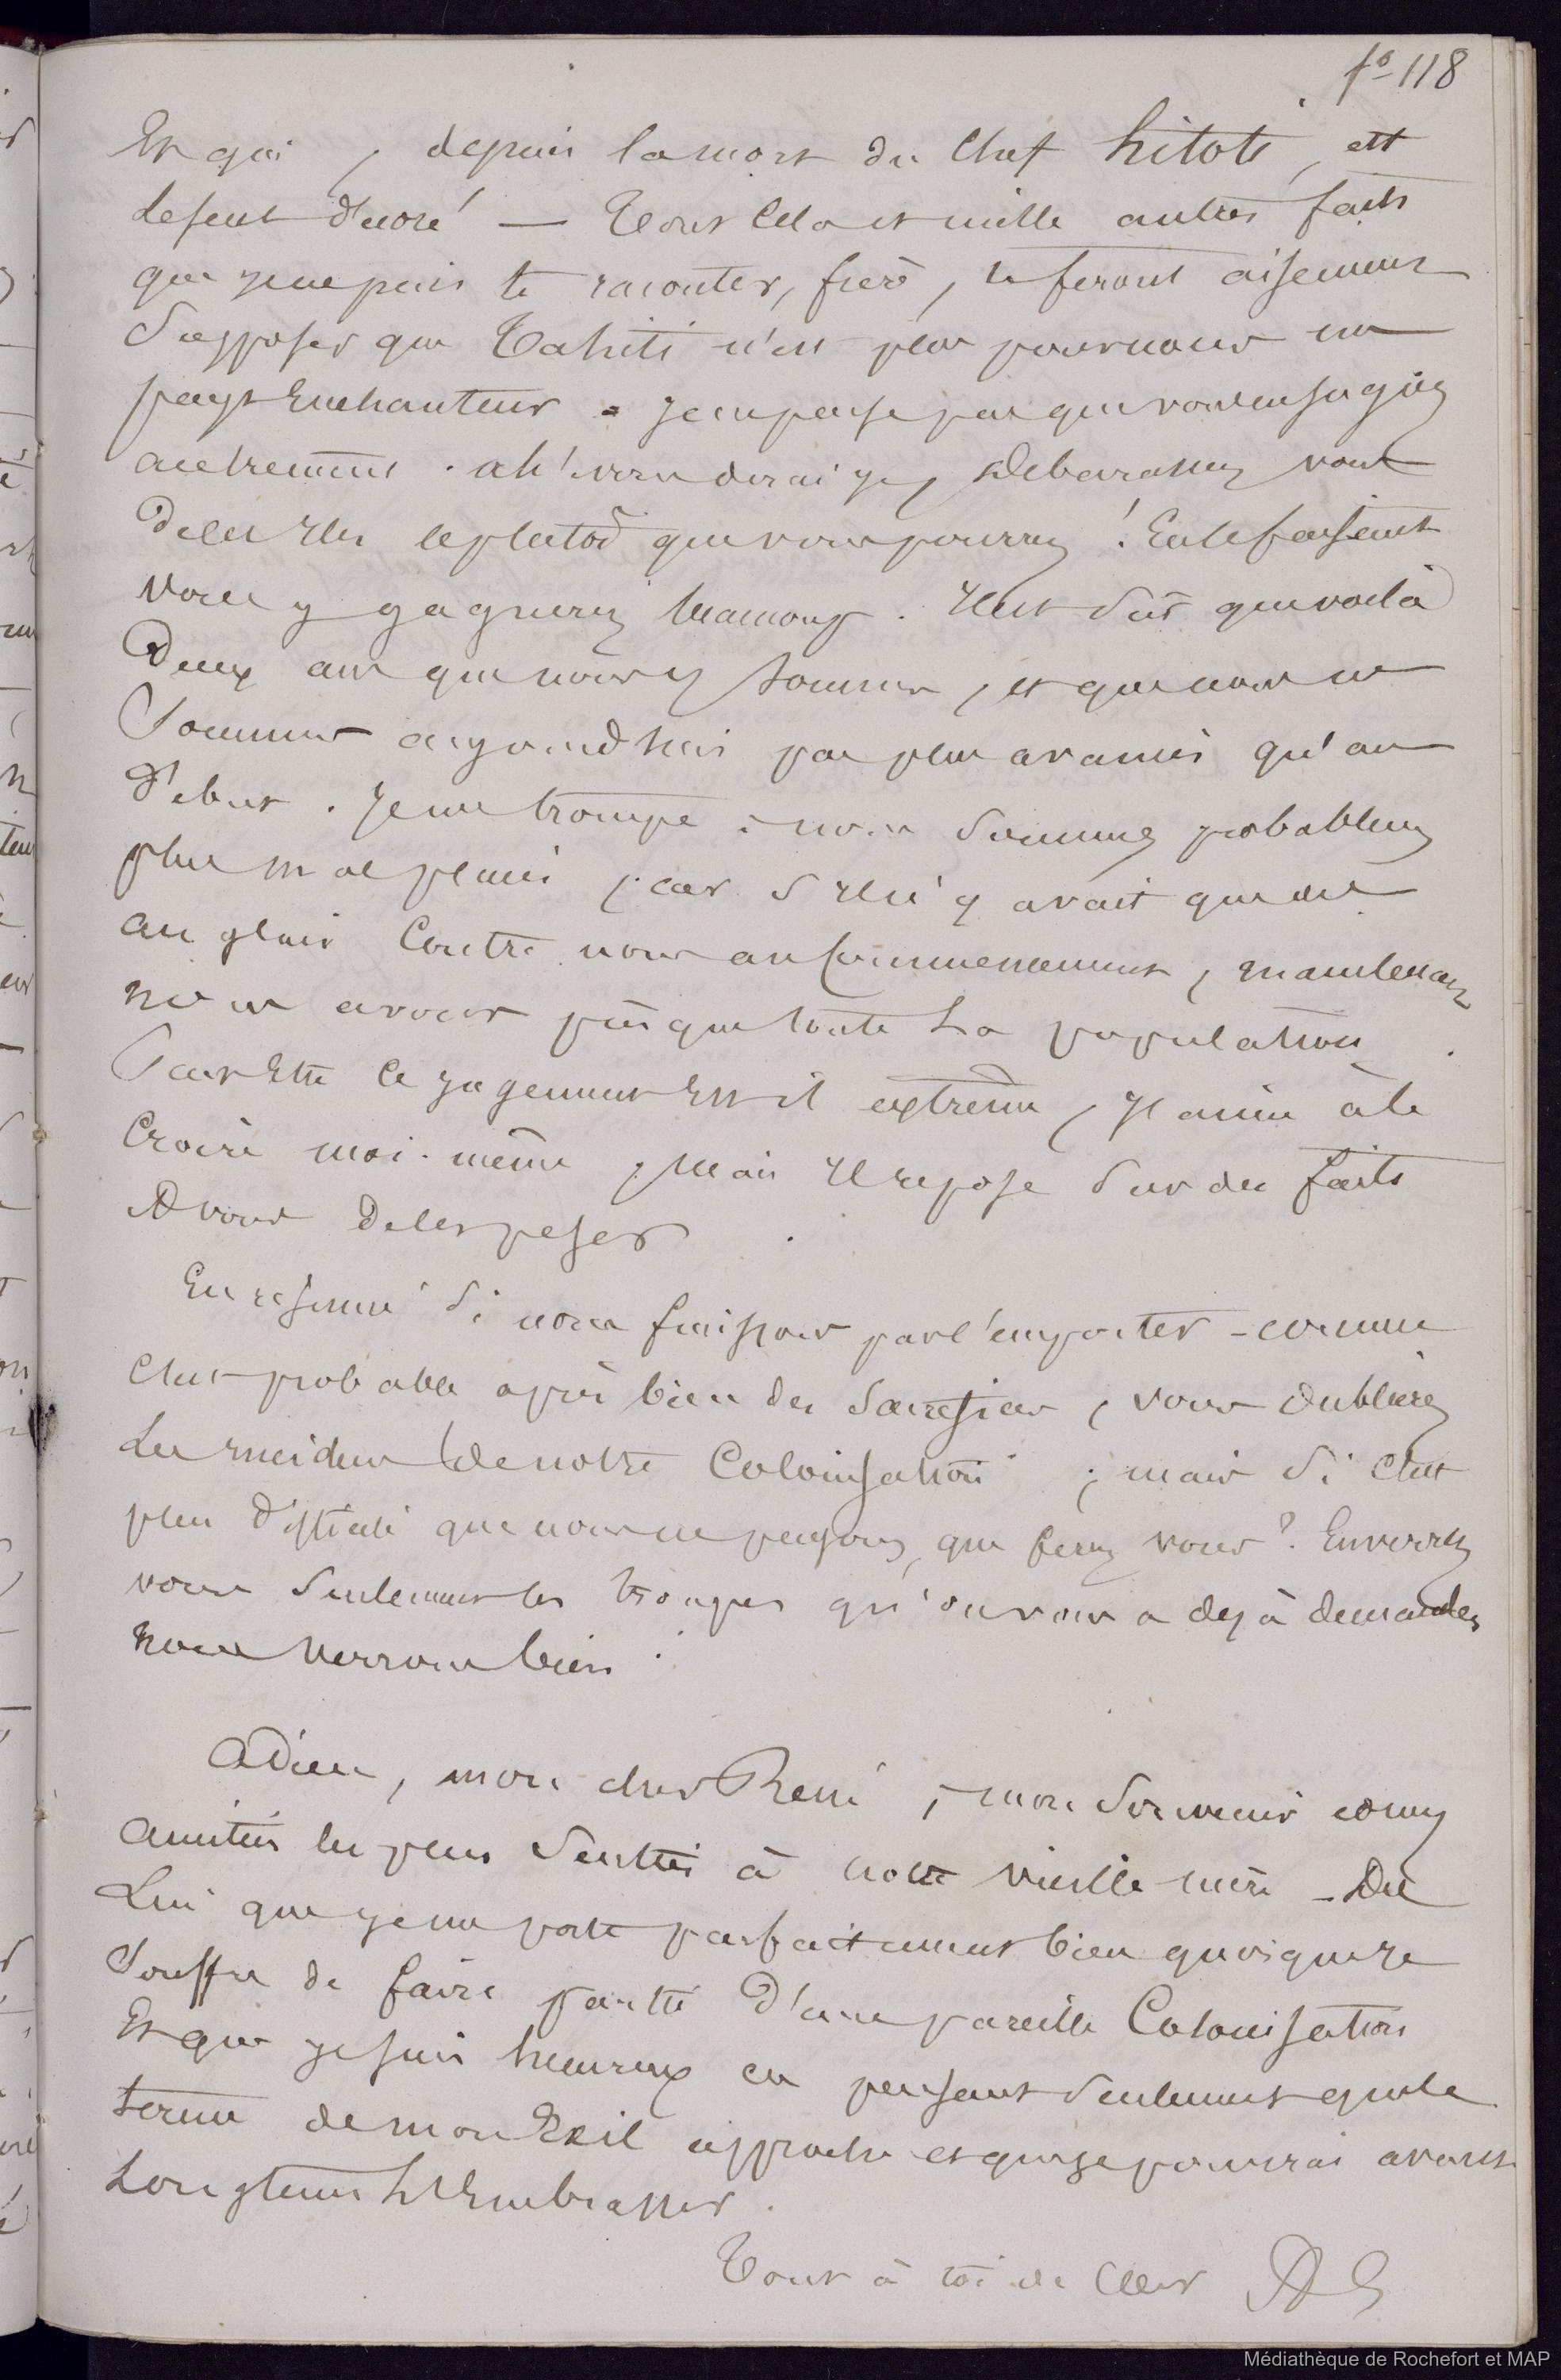 fo 118
Et qui, depuis la mort du Chef hitoti, est
le seul d'ecoré — Tout Cela et mille autres faits
que je ne puis te raconter, frère, te feront aisement
Supposer que Tahiti n'est plus pour nous un
pays Enchanteur. Je ne pense pas que vous en jugiez
autrement. ah! vous dirai je, Debarrassez vous
de les Iles le plutôt que vous pourrez! En le faisant
vous y gagnerez beaucoup. Il est Sûr que voilà
Deux ans que nous y sommes, et que nous ne
Sommes aujourd'hui pas plus avancés qu'au
d'ebut. Je me trompe; nous Sommes probablement
plus mal placés, car S'il n'y avait que des
anglais Contre nous au Commencement, maintenant
nous avons presque toute La population.
Peut Etre ce jugement Est il extrême, J'aime à le
Croire moi-même, Mais Il repose Sur des faits
A vous de les peser.
En resumé Si nous finissons par l'emporter - comme
C'est probable après bien des Sacrifices, vous oublierez
Les incidens de notre Colonisation; mais Si C'est
plus difficile que nous ne pensons, que ferez vous? Enverrez
vous Seulement les troupes qu'on vous a dejà demandées
nous verrons bien.
Adieu, mon cher René, mon Souvenir et mes
amitiés les plus Senties à notre vieille mère - Dis
Lui que je me porte parfaitement bien quoique je
Souffre de faire partie D'une pareille Colonisation
Et que je suis heureux en pensant Seulement que le
terme de mon Exil approche et que je pourrai avant
Longtems L'Embrasser.
Tout à toi de Coeur